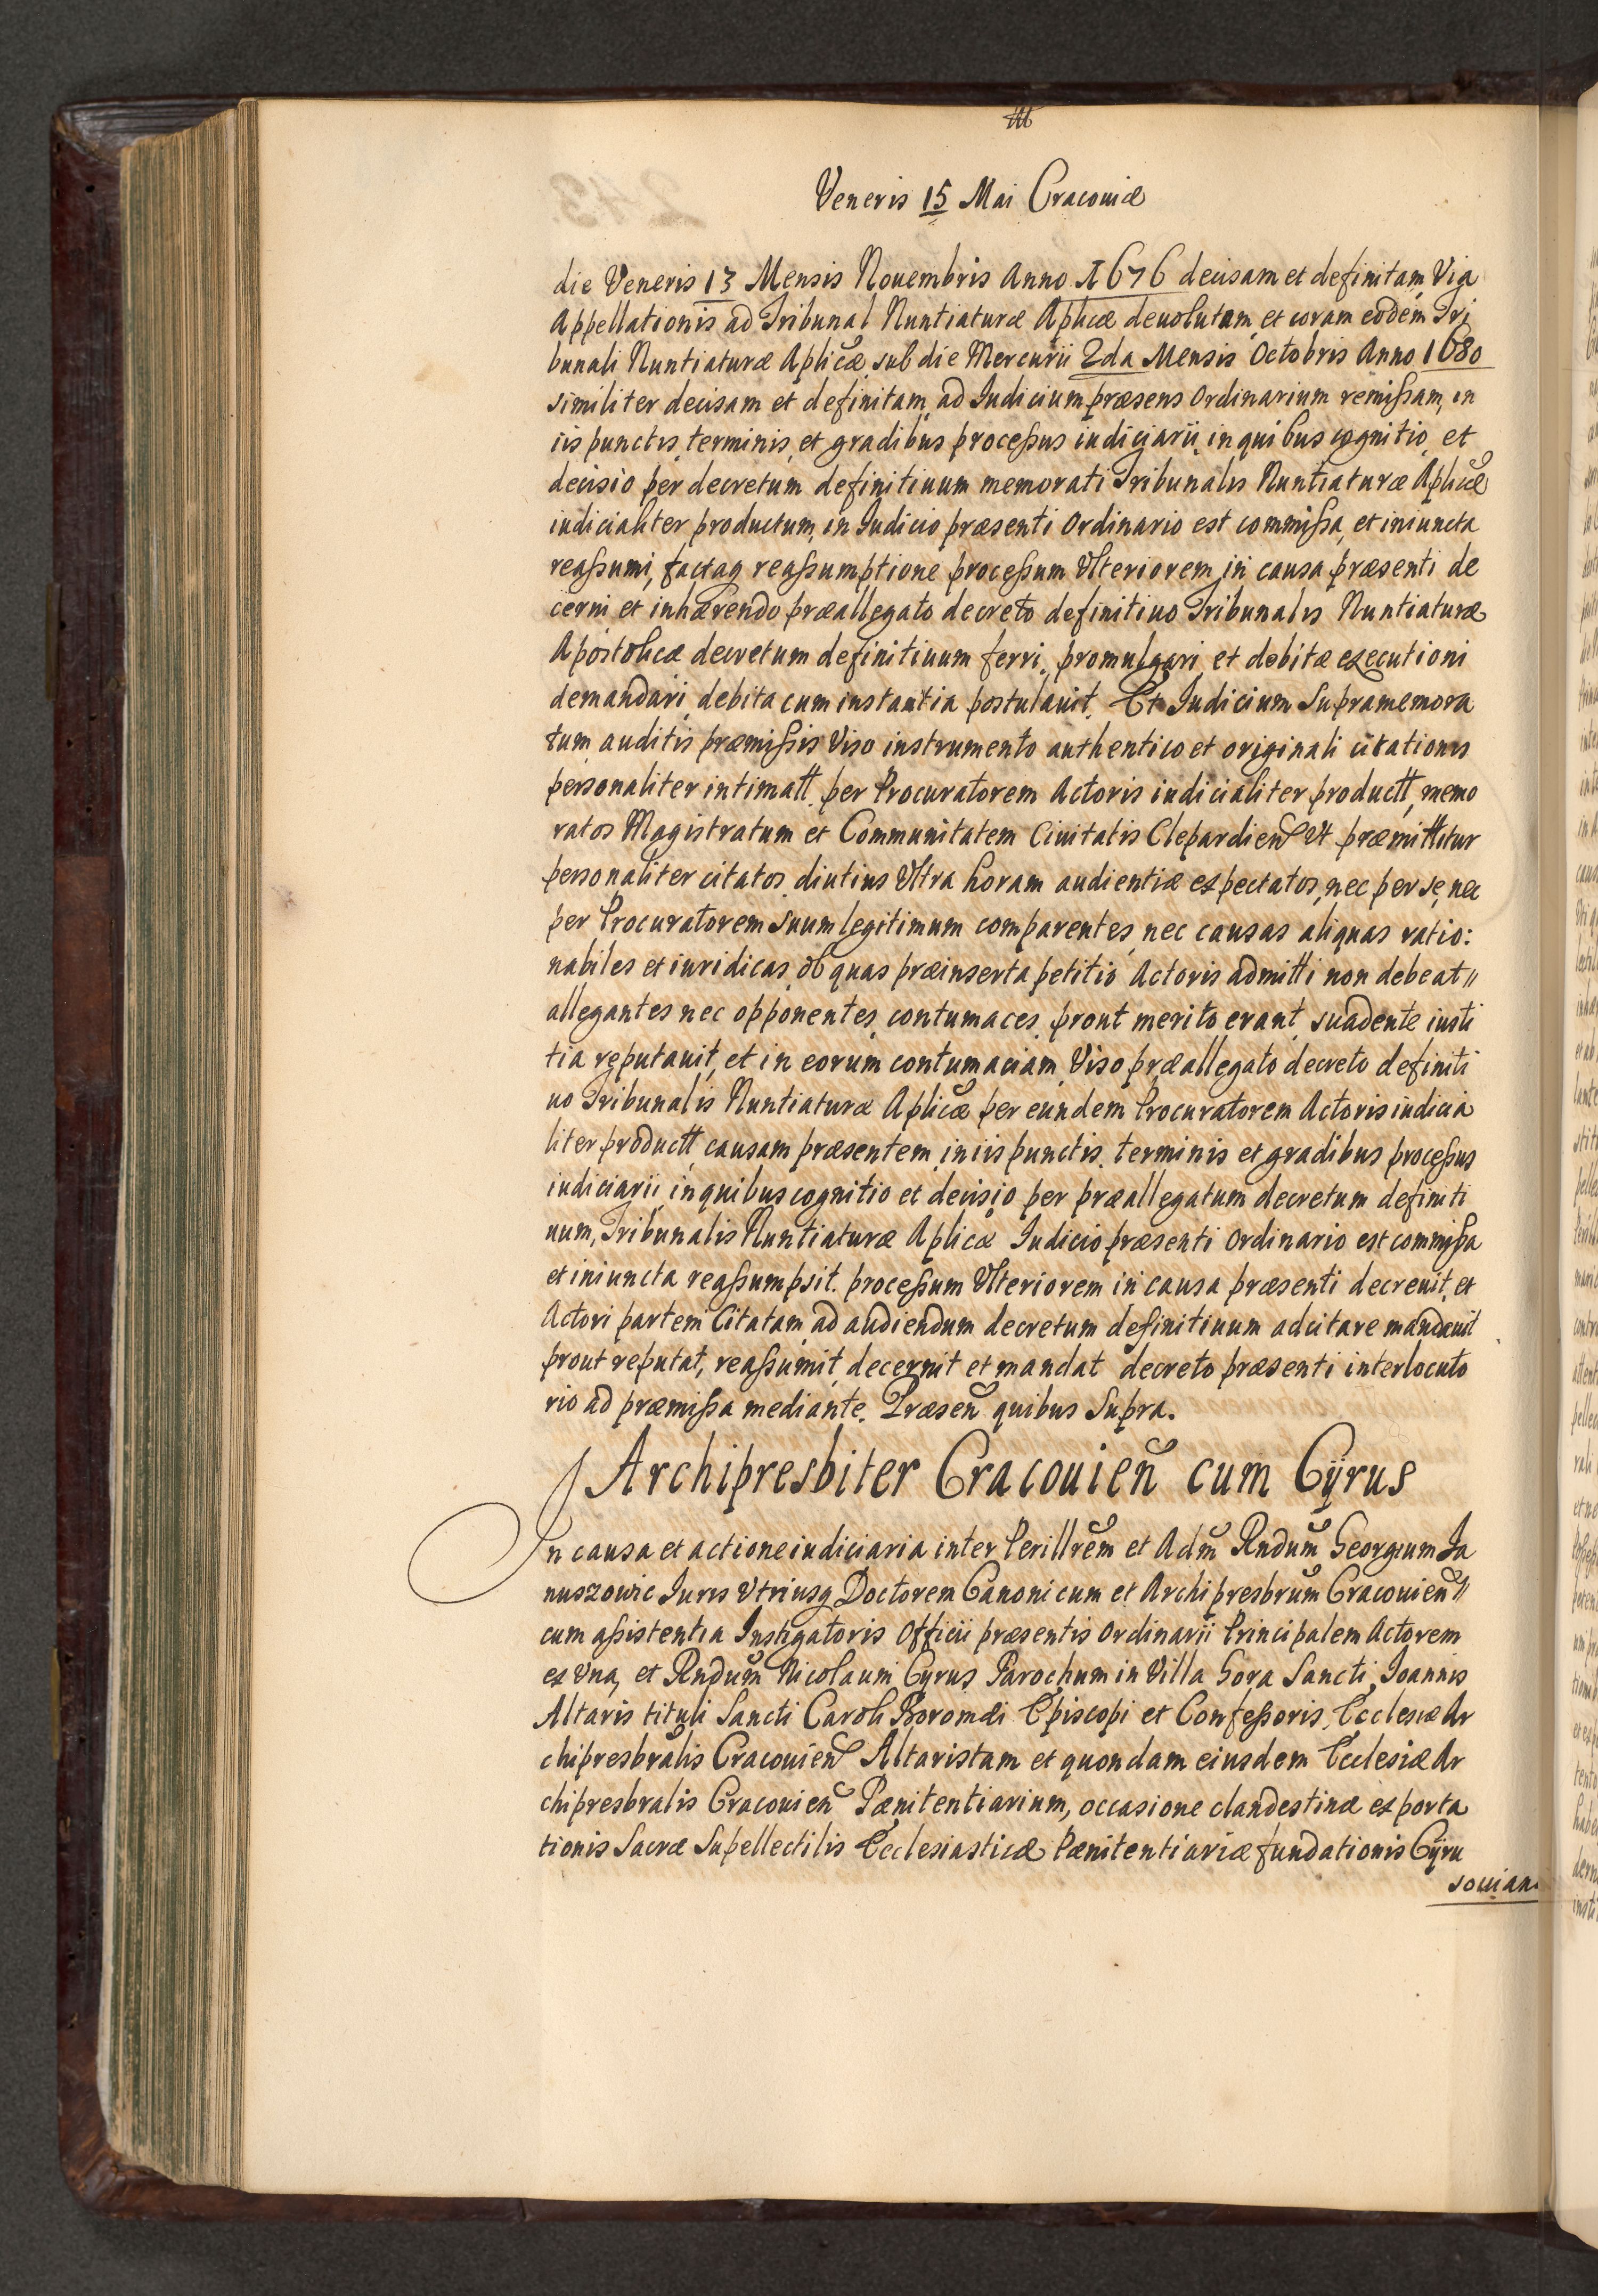 Veneris 15 Mai Cracouiæ
die Veneris 13 Mensis Nouembris Anno 1676 decisam et definitam, Via
Appellationis ad Tribunal Nuntiaturæ Aplicæ deuolutam, et coram eodem Tri
bunali Nuntiaturæ Aplicæ sub die Mercurii 2da Mensis Octobris Anno 1680
similiter decisam et definitam, ad Iudicium præsens Ordinarium remissam, in
iis punctis, terminis, et gradibus processus iudiciarii, in quibus cognitio, et
decisio per decretum definitiuum memorati Tribunalis Nuntiaturæ Aplicæ
iudicialiter productum, in Iudicio præsenti Ordinario est commissa, et iniuncta
reassumi, factaq reassumptione processum Vlteriorem in causa præsenti de
cerni et inhærendo præallegato decreto definitiuo Tribunalis Nuntiaturæ
Apostolicæ decretum definitiuum ferri, promulgari et debitæ executioni
demandari debita cum instantia postulauit. Et Iudicium Supramemora
tum auditis præmissis Viso instrumento authentico et originali citationis
personaliter intimatt. per Procuratorem Actoris iudicialiter productt, memo
ratos Magistratum et Communitatem Ciuitatis Clepardien Vt præmittitur
personaliter citatos diutius Vltra horam audientiæ expectatos, nec per se, nec
per Procuratorem suum legitimum comparentes, nec causas aliquas ratio:
nabiles et iuridicas, ob quas præinserta petitio Actoris admitti non debeat //
allegantes nec opponentes, contumaces, prout merito erant, suadente iusti
tia reputauit, et in eorum contumaciam, Viso præallegato decreto definiti
uo Tribunalis Nuntiaturæ Aplicæ per eundem Procuratorem Actoris iudicia
liter productt, causam præsentem, in iis punctis, terminis et gradibus processus
iudiciarii, in quibus cognitio et decisio per præallegatum decretum definiti
uum, Tribunalis Nuntiaturæ Aplicæ Iudicio præsenti Ordinario est commissa
et iniuncta reassumpsit. processum Vlteriorem in causa præsenti decreuit, et
Actori partem Citatam ad audiendum decretum definitiuum adcitare mandauit
prout reputat, reassumit, decernit et mandat decreto præsenti interlocuto
rio ad præmissa mediante. Præsen quibus Supra.
Archipresbiter Cracouien cum Cÿrus
In causa et actione iudiciaria inter Perillrem et Adm Rndum Georgium Ja
nuszowic Iuris Vtriusq Doctorem Canonicum et Archipresbrum Cracouien //
cum assistentia Instigatoris Officii præsentis Ordinarii Principalem Actorem
ex Vna, et Rndum Nicolaum Cyrus Parochum in Villa Gora Sancti Ioannis
Altaris tituli Sancti Caroli Boromæi Episcopi et Confessoris, Ecclesiæ Ar
chipresbralis Cracouien Altaristam et quondam eiusdem Ecclesiæ Ar
chipresbralis Cracouien Pænitentiarium, occasione clandestinæ exporta
tionis Sacræ Supellectilis Ecclesiasticæ Pænitentiariæ fundationis Cÿru